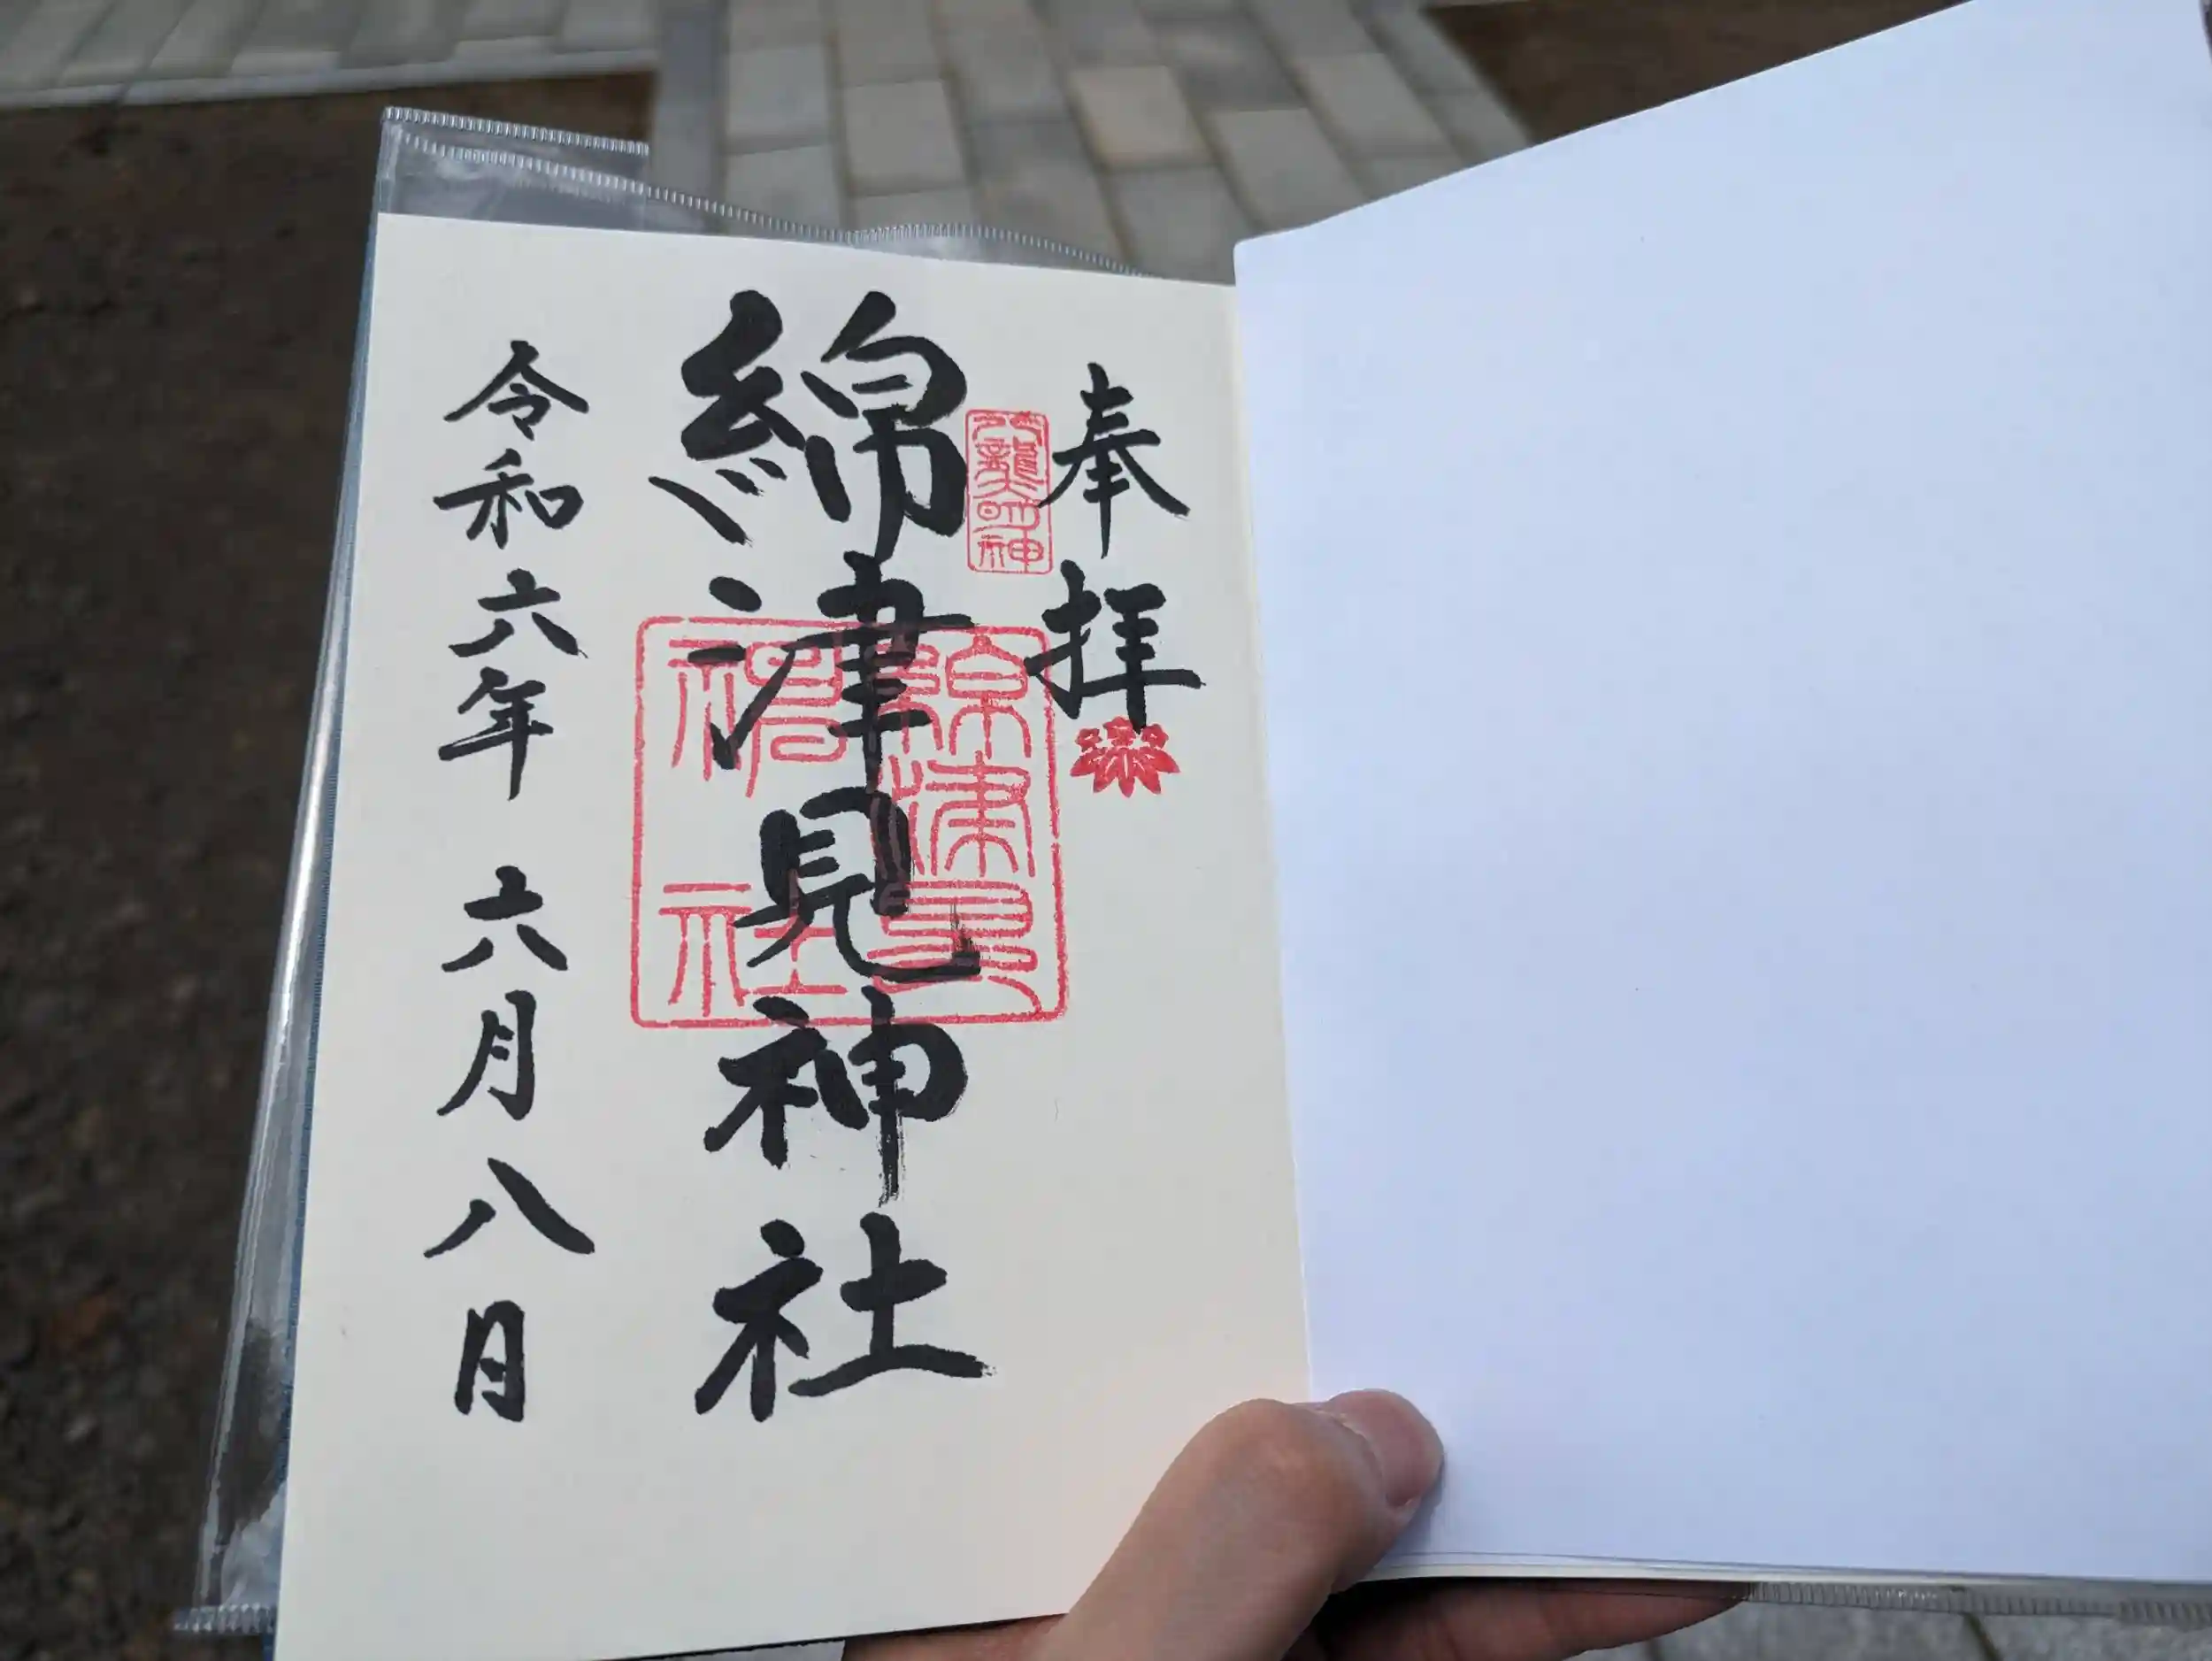 奉拝
八龍明神
綿津見神社
綿津見神社
令和六年 六月八日